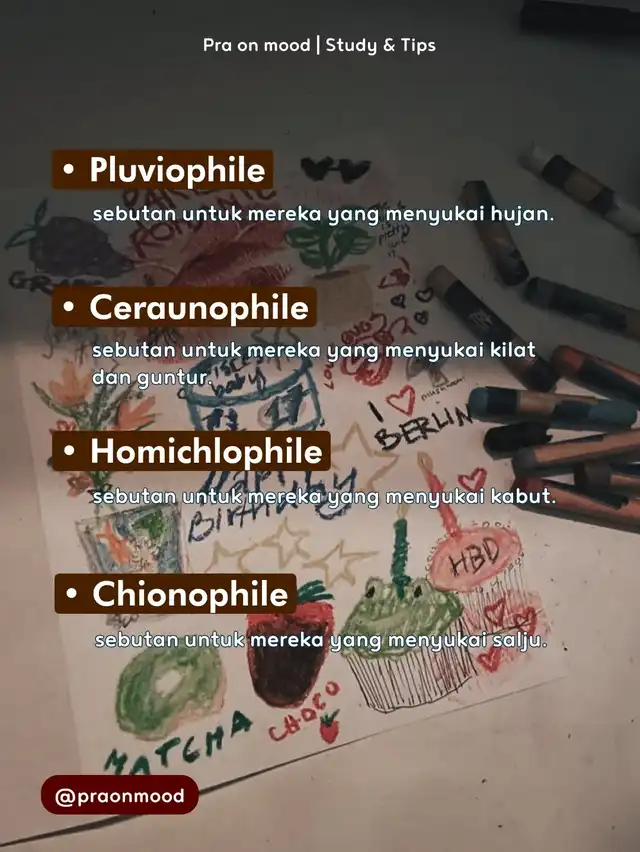 Pra on mood | Study & Tips
• Pluviophile
sebutan untuk mereka yang menyukai hujan.
• Ceraunophile
sebutan untuk mereka yang menyukai kilat
dan guntur.
• Homichlophile
sebutan untuk mereka yang menyukai kabut.
• Chionophile
sebutan untuk mereka yang menyukai salju.
I ♡
BERLIN
Birthday
HBD
MATCHA
CHOCO
@praonmood